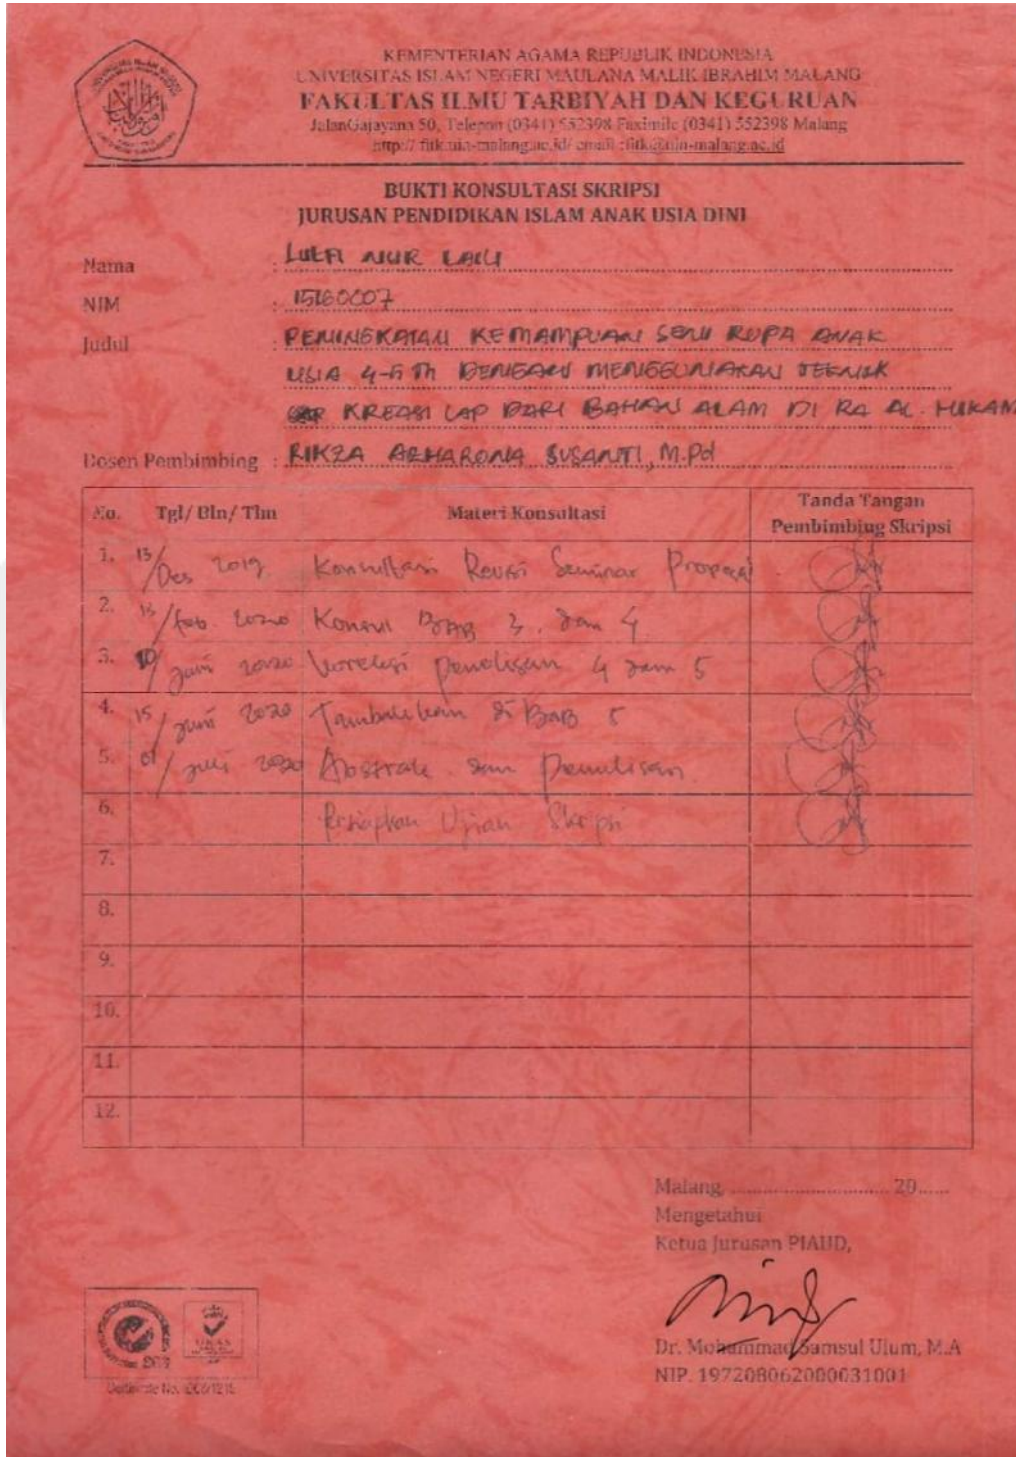 KEMENTERIAN AGAMA REPUBLIK INDONESIA
UNIVERSITAS ISLAM NEGERI MAULANA MALIK IBRAHIM MALANG
FAKULTAS ILMU TARBIYAH DAN KEGURUAN
JalanGajayana 50, Telepon (0341) 552398 Faximile (0341) 552398 Malang
http:// fitk.uin-malang.ac.id/ email :fitk@uin-malang.ac.id
BUKTI KONSULTASI SKRIPSI
JURUSAN PENDIDIKAN ISLAM ANAK USIA DINI
Nama : LULFI NUR LAILI
NIM : 15160007
Judul : PENINGKATAN KEMAMPUAN SENI RUPA ANAK
USIA 4-5 Th DENGAN MENGGUNAKAN TEKNIK
KREASI CAP DARI BAHAN ALAM DI RA AL. HIKAM
Dosen Pembimbing : RIKZA AZHARONA SUSANTI, M.Pd
No. Tgl/ Bln/ Thn Materi Konsultasi Tanda Tangan Pembimbing Skripsi
1. 13/Des 2019 Konsultasi Revisi Seminar Proposal
2. 13/feb. 2020 Konsul BAB 3. dan 4
3. 10/juni 2020 koreksi penulisan 4 dan 5
4. 15/juni 2020 Tambahkan di BAB 5
5. 01/juli 2020 Abstrak dan Penulisan
6. Persiapkan Ujian Skripsi
7.
8.
9.
10.
11.
12.
Malang, .............................. 20......
Mengetahui
Ketua Jurusan PIAUD,
Dr. Mohammad Samsul Ulum, M.A
NIP. 197208062000031001
UKAS
Certificate No.